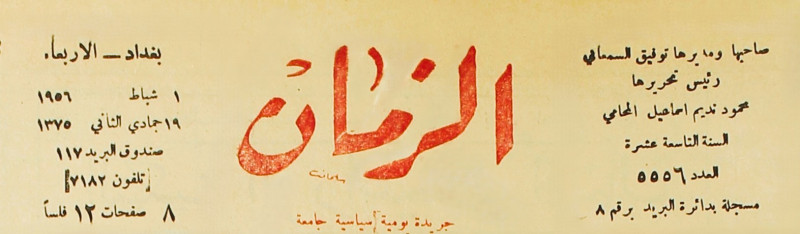 صاحبها ومديرها توفيق السمعاني
رئيس تحريرها
محمود نديم اسماعيل المحامي
السنة التاسعة عشرة
العدد ٥٥٥٦
مسجلة بدائرة البريد برقم ٨
الزمان
جريدة يومية سياسية جامعة
بغداد ـ الاربعاء
١ شباط ١٩٥٦
١٩ جمادي الثاني ١٣٧٥
صندوق البريد ١١٧
[تلفون ٧١٨٢]
٨ صفحات ١٢ فلساً